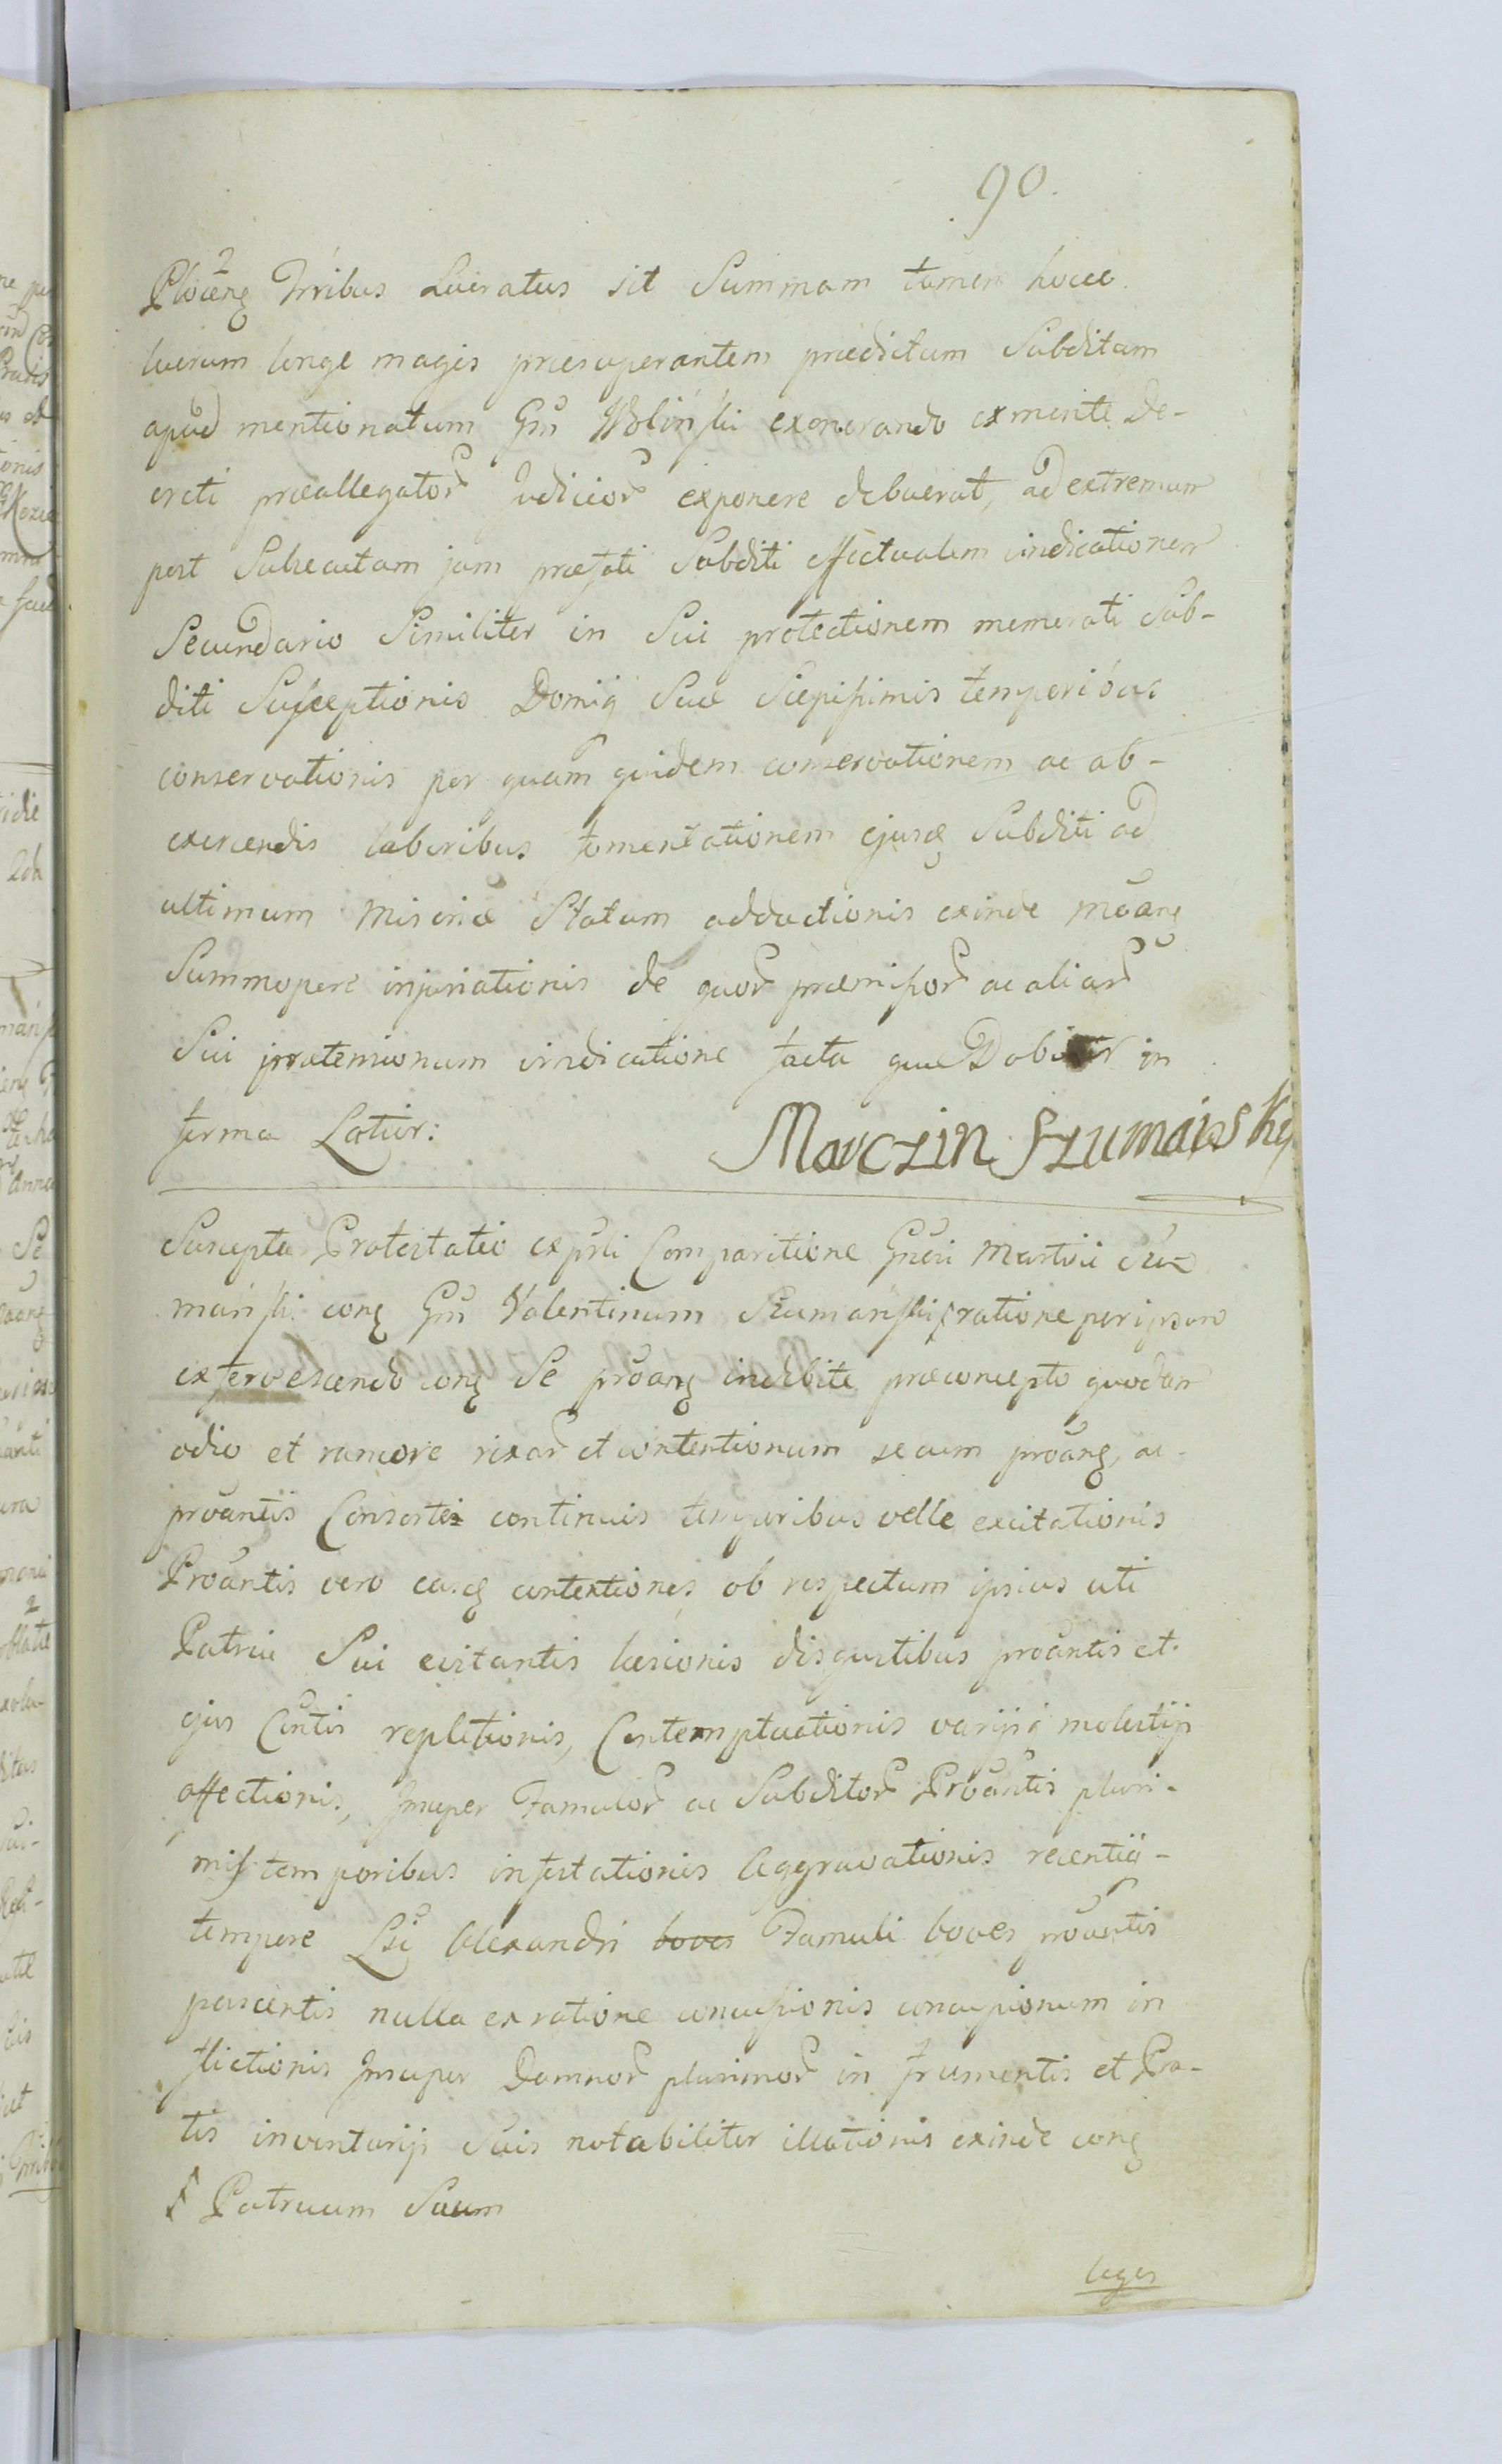 90.
Plocēnȩ Trribus Lucratus sit Summam tamen hocce
lucrum longe magis præsuperantem prædictum Subditum
apud mentionatum Gm̄ Woliński exonerando ex mente De-
creti præallegator Judicior exponere debuerat, ad extremum
post Subsecutam jam præfati Subditi effectualem vindicationem
Secundario Similiter in Sui protectionem memorati Sub-
diti Susceptionis Domiq Suæ Sæpissimis temporibus
conservationis per quam quidem conservationem ac ab-
exercendis laboribus fomentationem ejusq Subditi ad
ultimum miseriæ Statum adductionis exinde
Summopere injuriationis de quor præmissor ac aliar
Sui prætensionum vindicatione facta quæ Dabitur in
forma Latior:
Marczin Szumainsky
Suscepta Protestatio ex prsti Comparitione Gnesi Martini Szu-
mański conq Gm̄ Valentinum Szumański ratione per ipsum
exfervescendo conq Se proanq indebite præconcepto quodam
odio et rancore rixar et contentionum secum proanq, ac
proantis Consorte continuis temporibus velle excitationis
Proantis vero easq contentiones ob respectum ipsius uti
Patrui Sui evitantis læsionis disgustibus proantis et
ejus Cōntis repletionis, Contemptuationis varijsq molestijs
affectionis, Insuper Famulor ac Subditor Proantis pluri-
mis temporibus infestationis Aggravationis recentiq-
tempore Lsi Alexandri boves Famuli boves proantis
pascentis nulla ex ratione concussionis concussionum in
flictionis Insuper Damnor plurimor in frumentis et Pra-
tis inventarijs Suis notabiliter illationis exinde conq
Patruum Suum
leges